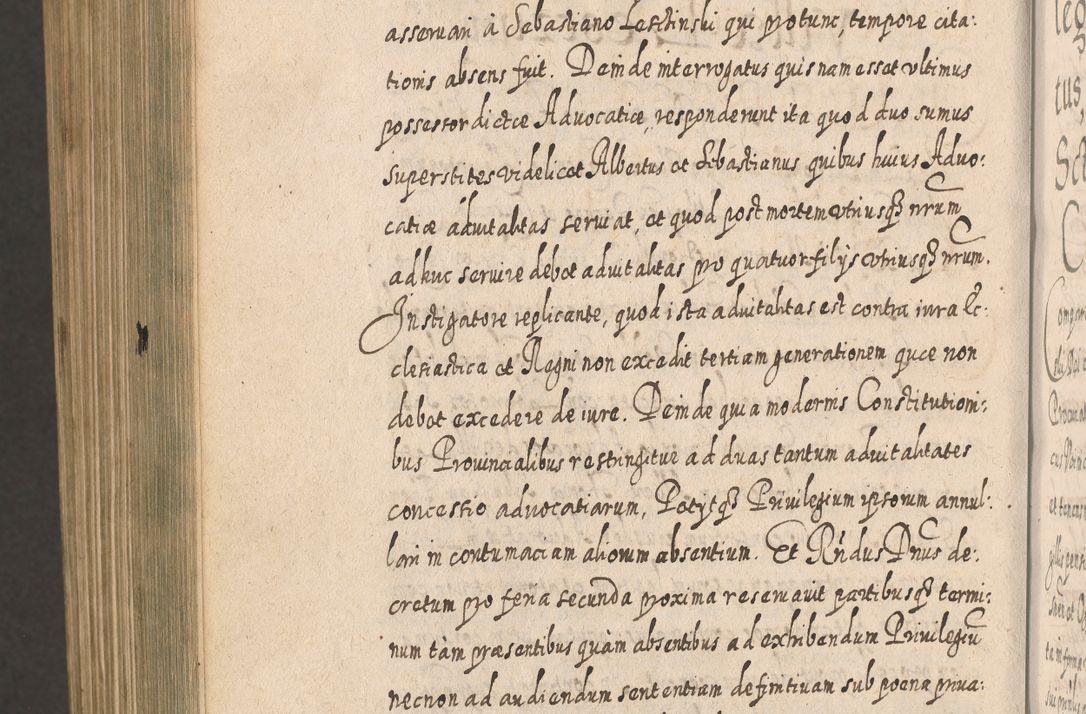 asseruari à Sebastiano Lesctinski qui pro tunc, tempore cita:
tionis absens fuit. Deinde interrogatus quisnam esset vltimus
possessor dictæ Aduocatiæ, responderunt ita quod duo sumus
superstites videlicet Albertus et Sebastianus quibus huius Aduo:
catiæ aduitalitas seruiat, et quod post mortem vtriusq3 nrum
adhuc seruire debet aduitalitas pro quatuor filijs vtriusq3 nrum.
Instigatore replicante, quod ista aduitalitas est contra iura Ec:
clesiastica et Regni non excedit tertiam generationem quæ non
debet excedere de iure. Deinde quia modernis Constitutioni:
bus Prouincialibus restringitur ad duas tantum aduitalitates
concessio aduocatiarum, Petijtq3 Priuilegium ipsorum annul:
lari in contumaciam aliorum absentium. Et Rndus Dnus de:
cretum pro feria secunda proxima reseruauit partibusq3 termi:
num tàm præsentibus quàm absentibus ad exhibendum Priuilegiu
necnon ad audiendum sententiam definitiuam sub poena priua:
leg
tus
C